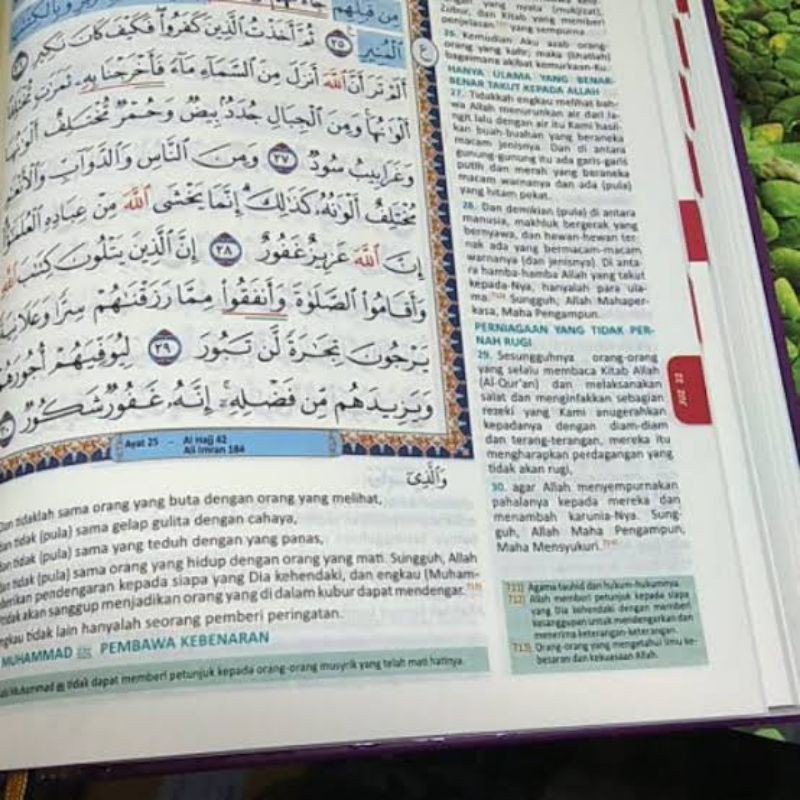 من قبلهم جاءتهم
ٱلْمُنِيرِ ٢٥ ثُمَّ أَخَذْتُ ٱلَّذِينَ كَفَرُوا۟ فَكَيْفَ كَانَ نَكِيرِ
أَلَمْ تَرَ أَنَّ ٱللَّهَ أَنزَلَ مِنَ ٱلسَّمَآءِ مَآءً فَأَخْرَجْنَا بِهِۦ ثَمَرَٰتٍ مُّخْتَلِفًا
أَلْوَٰنُهَا وَمِنَ ٱلْجِبَالِ جُدَدٌۢ بِيضٌ وَحُمْرٌ مُّخْتَلِفٌ أَلْوَٰنُهَا
وَغَرَابِيبُ سُودٌ ٢٧ وَمِنَ ٱلنَّاسِ وَٱلدَّوَآبِّ وَٱلْأَنْعَٰمِ
مُخْتَلِفٌ أَلْوَٰنُهُۥ كَذَٰلِكَ إِنَّمَا يَخْشَى ٱللَّهَ مِنْ عِبَادِهِ ٱلْعُلَمَٰٓؤُا۟
إِنَّ ٱللَّهَ عَزِيزٌ غَفُورٌ ٢٨ إِنَّ ٱلَّذِينَ يَتْلُونَ كِتَٰبَ ٱللَّهِ
وَأَقَامُوا۟ ٱلصَّلَوٰةَ وَأَنفَقُوا۟ مِمَّا رَزَقْنَٰهُمْ سِرًّا وَعَلَانِيَةً
يَرْجُونَ تِجَٰرَةً لَّن تَبُورَ ٢٩ لِيُوَفِّيَهُمْ أُجُورَهُمْ
وَيَزِيدَهُم مِّن فَضْلِهِۦٓ إِنَّهُۥ غَفُورٌ شَكُورٌ ٣٠
ع
Ayat 25 - Al Hajj 42
Ali Imran 184
وَٱلَّذِىٓ
tidaklah sama orang yang buta dengan orang yang melihat,
tidak (pula) sama gelap gulita dengan cahaya,
tidak (pula) sama yang teduh dengan yang panas,
tidak (pula) sama orang yang hidup dengan orang yang mati. Sungguh, Allah
pendengaran kepada siapa yang Dia kehendaki, dan engkau (Muham-
tidak akan sanggup menjadikan orang yang di dalam kubur dapat mendengar.
tidak lain hanyalah seorang pemberi peringatan.
MUHAMMAD ﷺ PEMBAWA KEBENARAN
Muhammad ﷺ tidak dapat memberi petunjuk kepada orang-orang musyrik yang telah mati hatinya.
yang nyata (mukjizat),
Zubur, dan Kitab yang memberi
penjelasan yang sempurna.
26. Kemudian Aku azab orang-
orang yang kafir; maka (lihatlah)
bagaimana akibat kemurkaan-Ku.
HANYA ULAMA YANG BENAR-
BENAR TAKUT KEPADA ALLAH
27. Tidakkah engkau melihat bah-
wa Allah menurunkan air dari la-
ngit lalu dengan air itu Kami hasil-
kan buah-buahan yang beraneka
macam jenisnya. Dan di antara
gunung-gunung itu ada garis-garis
putih dan merah yang beraneka
macam warnanya dan ada (pula)
yang hitam pekat.
28. Dan demikian (pula) di antara
manusia, makhluk bergerak yang
bernyawa, dan hewan-hewan ter-
nak ada yang bermacam-macam
warnanya (dan jenisnya). Di anta-
ra hamba-hamba Allah yang takut
kepada-Nya, hanyalah para ula-
ma. Sungguh, Allah Mahaper-
kasa, Maha Pengampun.
PERNIAGAAN YANG TIDAK PER-
NAH RUGI
29. Sesungguhnya orang-orang
yang selalu membaca Kitab Allah
(Al-Qur'an) dan melaksanakan
salat dan menginfakkan sebagian
rezeki yang Kami anugerahkan
kepadanya dengan diam-diam
dan terang-terangan, mereka itu
mengharapkan perdagangan yang
tidak akan rugi,
30. agar Allah menyempurnakan
pahalanya kepada mereka dan
menambah karunia-Nya. Sung-
guh, Allah Maha Pengampun,
Maha Mensyukuri.
711) Agama tauhid dan hukum-hukumnya.
712) Allah memberi petunjuk kepada siapa
yang Dia kehendaki dengan memberi
kesanggupan untuk mendengarkan dan
menerima keterangan-keterangan.
713) Orang-orang yang mengetahui ilmu ke-
besaran dan kekuasaan Allah.
JUZ 22